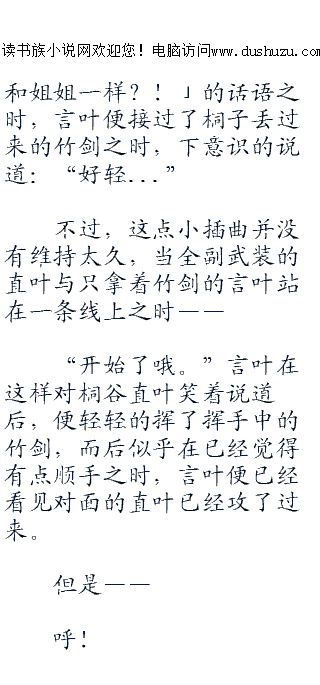 读书族小说网欢迎您！电脑访问www.dushuzu.com
和姐姐一样？！」的话语之
时，言叶便接过了桐子丢过
来的竹剑之时，下意识的说
道：“好轻...”
不过，这点小插曲并没
有维持太久，当全副武装的
直叶与只拿着竹剑的言叶站
在一条线上之时——
“开始了哦。”言叶在
这样对桐谷直叶笑着说道
后，便轻轻的挥了挥手中的
竹剑，而后似乎在已经觉得
有点顺手之时，言叶便已经
看见对面的直叶已经攻了过
来。
但是——
呼！